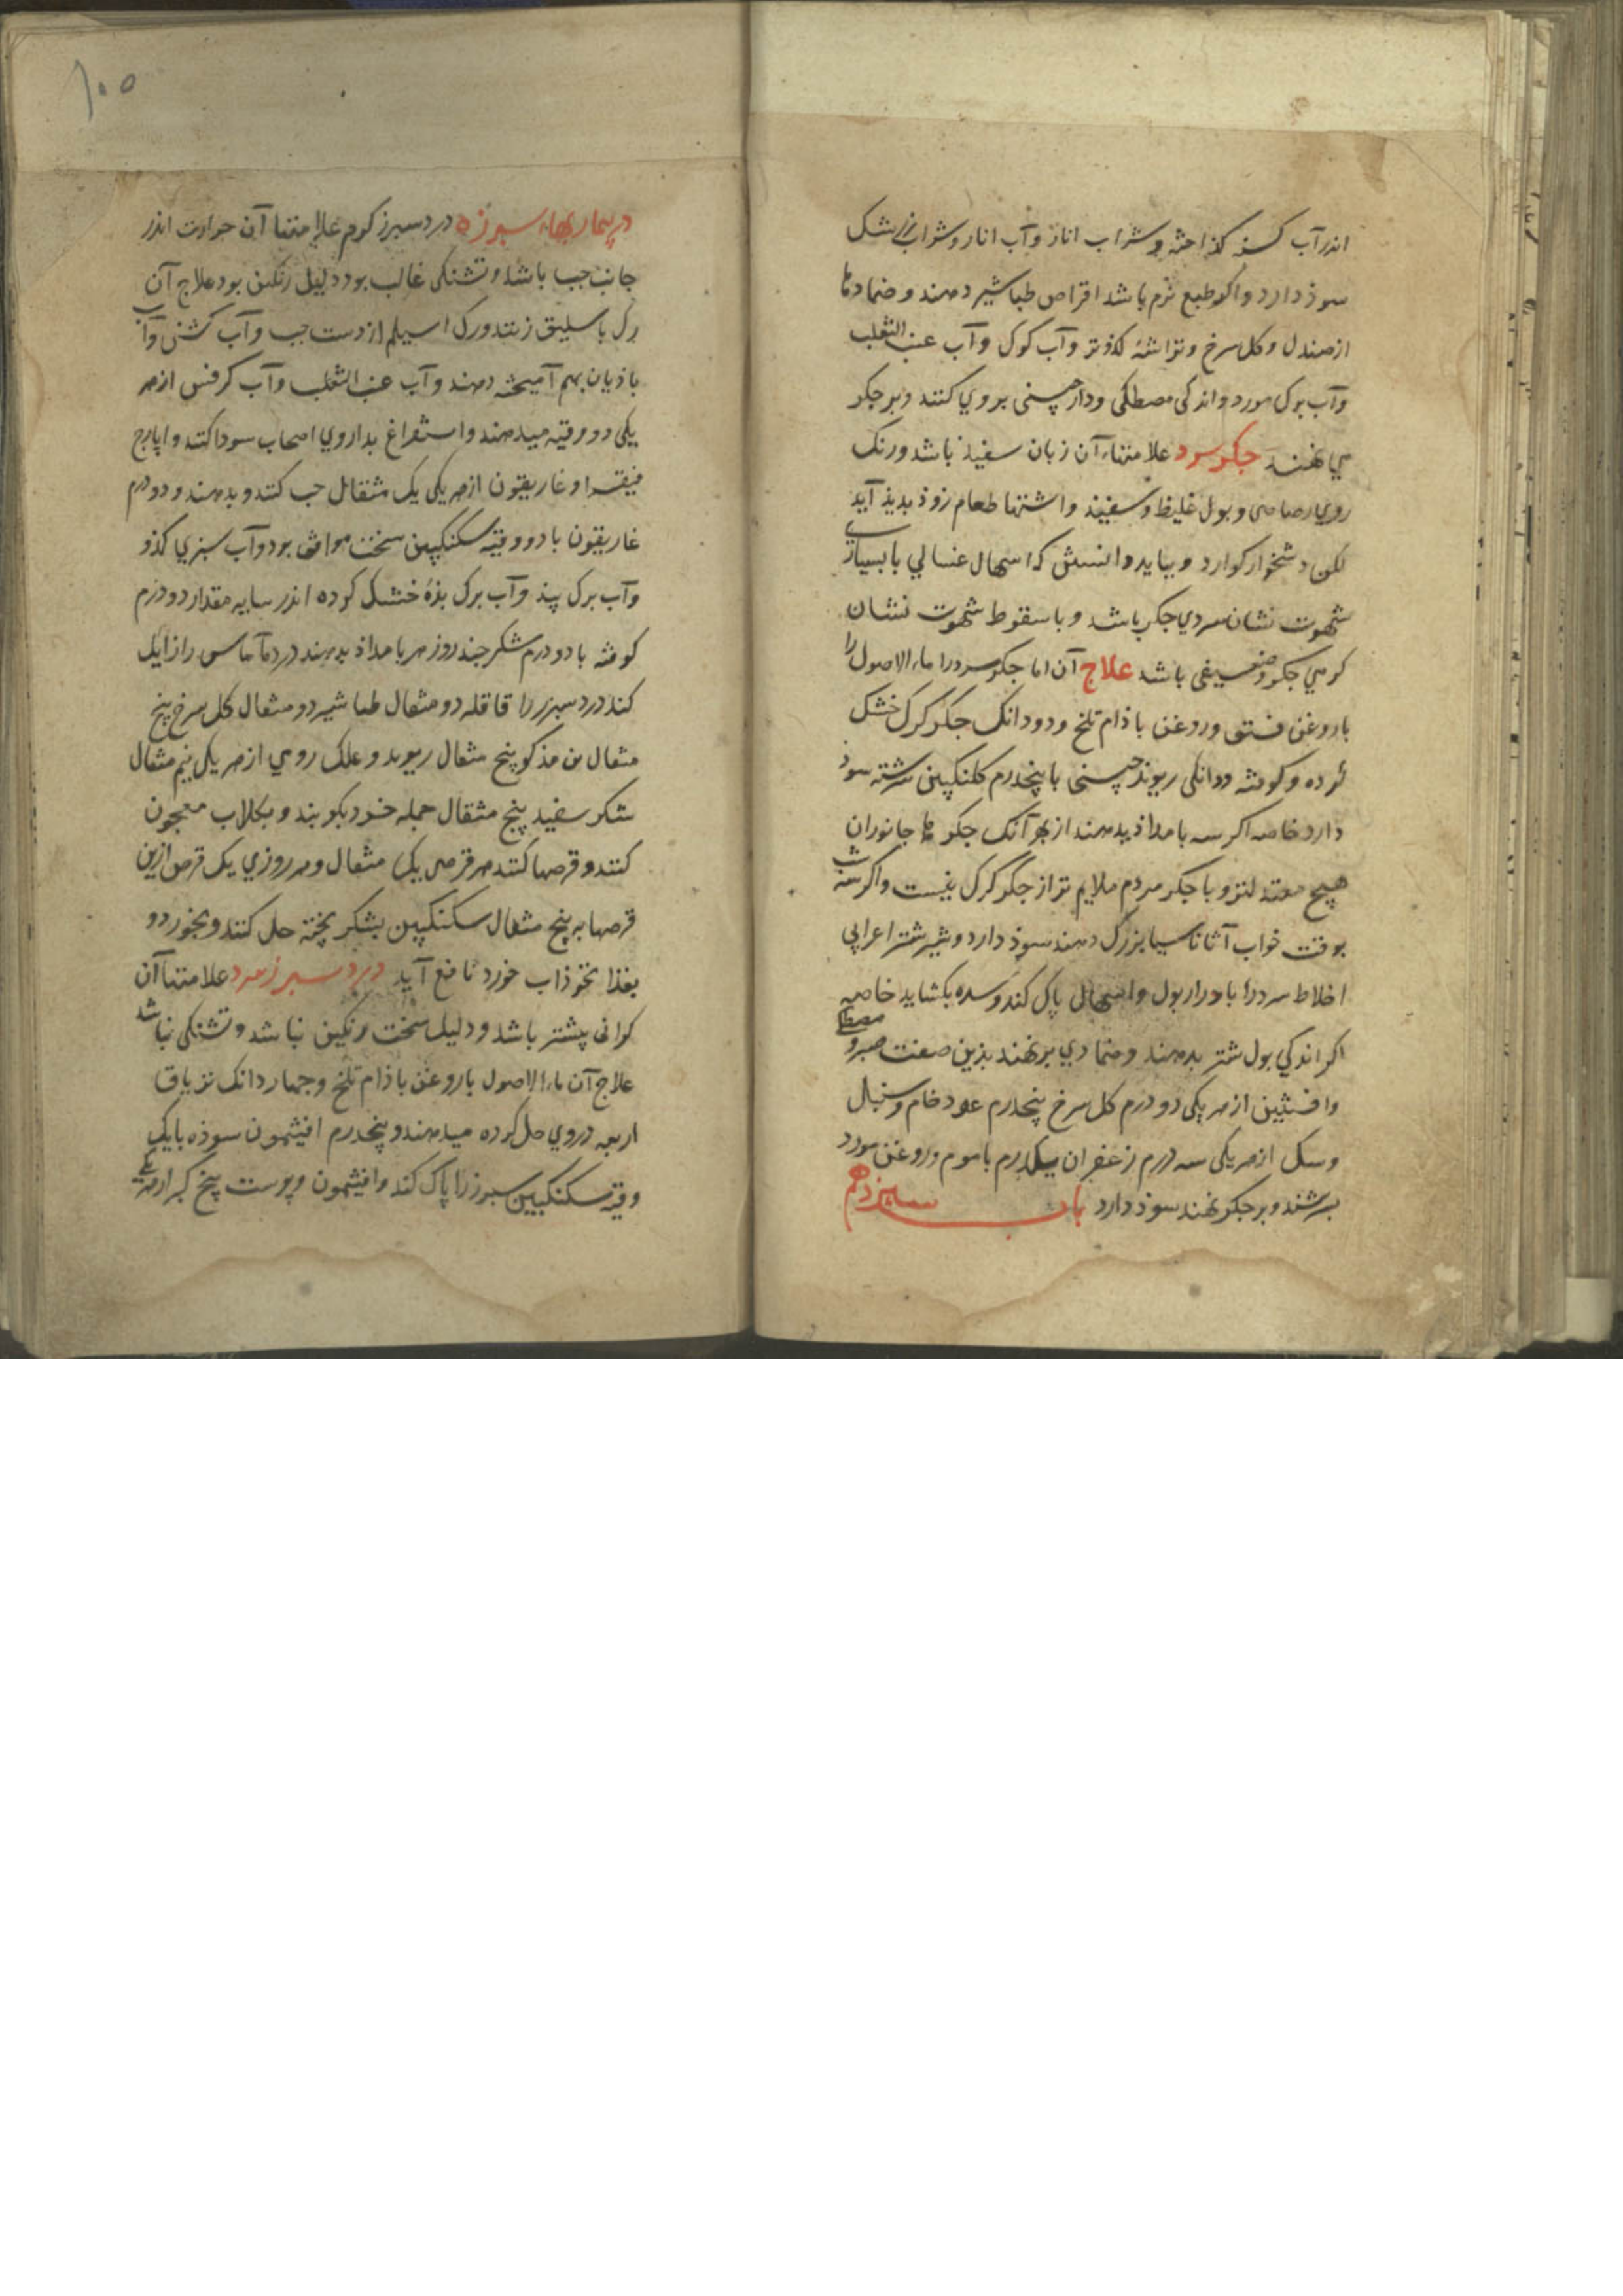 اندر آب کسنه کذاخته و شراب انار و آب انار و شراب زرشک
سوذ دارد و اکر طبع نرم باشد اقراص طباشیر دهند و ضمادها
از صندل و کل سرخ و تراشهٔ کذو تر و آب کوک و آب عنب الثعلب
و آب برک مورد و اندکی مصطکی و دارچینی بروی کنند و بر جکر
می نهند جکر سرد علامتهاء آن زبان سفیذ باشد و رنک
روی رصاصی و بول غلیظ و سفیذ و اشتهاء طعام زوذ بدیذ آید
لکن دشخوار کوارد و بباید دانستن که اسهال غسالی با بسیاری
شهوت نشان سردی جکر باشد و با سقوط شهوت نشان
کرمی جکر و ضعیفی باشد علاج آن اما جکر سرد را ماء الاصول را
با روغن فستق و روغن باذام تلخ و دو دانک جکر کرک خشک
کرده و کوفته و دانکی ریوند چینی با پنجدرم کلنکبین سرشته سوذ
دارد خاصه اکر سه بامداذ بدهند از بهر آنک جکرها جانوران
هیچ معتدلتر و با جکر مردم ملایم تر از جکر کرک نیست و اکر شب
بوقت خواب آثاناسیا بزرک دهند سوذ دارد و شیر شتر اعرابی
اخلاط سرد را بادرار بول و اسهال پاک کند و سده بکشاید خاصه
اکر اندکی بول شتر بدهند و ضمادی برنهند بذین صفت صبر و مصطکی
و افسنتین از هر یکی دو درم کل سرخ پنجدرم عود خام و سنبل
و سک از هر یکی سه درم زعفران یکدرم با موم و روغن مورد
بسرشند و بر جکر نهند سوذ دارد باب سیزدهم
۱۰۰
در بیماریهاء سبرزه درد سبرز کرم علامتهاء آن حرارت اندر
جانب جب باشد و تشنکی غالب بود دلیل رنکین بود علاج آن
رک باسلیق زنند و رک اسیلم از دست جب و آب کشنی و آب
باذیان بهم آمیخته دهند و آب عنب الثعلب و آب کرفس از هر
یکی دو وقیه میدهند و استفراغ بداروی اصحاب سودا کنند و ایارج
فیقرا و غاریقون از هر یکی یک مثقال حب کنند و بدهند و دو درم
غاریقون با دو وقیه سکنکبین سخت موافق بود و آب سبزی کذو
و آب برک بیذ و آب برک بذهٔ خشک کرده اندر سایه مقدار دو درم
کوفته با دو درم شکر جند روز هر بامداذ بدهند درد آماس را زایل
کند درد سبرز را قاقله دو مثقال طباشیر دو مثقال کل سرخ پنج
مثقال پنج مثقال ریوند و علک رومی از هر یکی نیم مثقال
شکر سفید پنج مثقال جمله خرد بکوبند و بکلاب معجون
کنند و قرصها کنند هر قرصی یک مثقال و هر روزی یک قرص ازین
قرصها به پنج مثقال سکنکبین بشکر پخته حل کنند و بخورد و
بغذا نخوذاب خورد نافع آید درد سبرز سرد علامتهاء آن
کرانی بیشتر باشد و دلیل سخت رنکین نباشد و تشنکی نباشد
علاج آن ماء الاصول با روغن باذام تلخ و جهار دانک تریاق
اربعه در وی حل کرده میدهند و پنجدرم افیثمون سوذه با یک
وقیه سکنکبین سبرز را پاک کند و افیثمون و پوست بیخ کبر از هر یکی